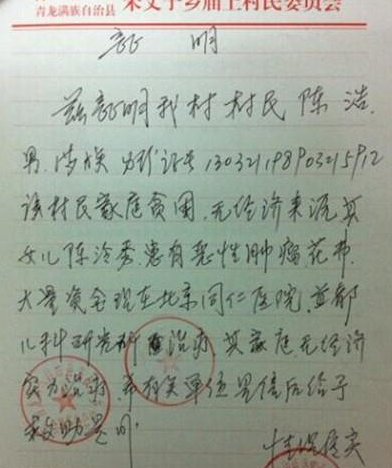 青龙满族自治县 朱丈子乡庙上村民委员会
证 明
兹证明我村村民陈浩,
男.汉族 身份证号130321198903215912
该村民家庭贫困.无经济来源其
女儿陈泠秀.患有恶性肿瘤花费.
大量资金现在北京同仁医院.首都
儿科研究所 治疗 其家庭无经济
实力治疗.希有关单位见信后给予
救助是盼
情况属实